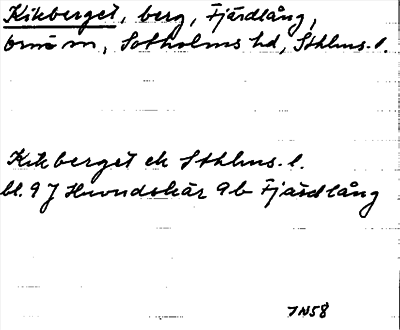 Kikberget, berg, Fjärdlång,
Ornö sn, Sotholms hd, Sthlms. l.
Kikberget ek Sthlms. l.
bl. 97 Huvudskär 9b Fjärdlång
7N58